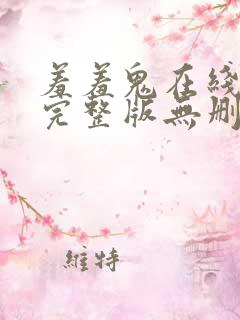 羞羞鬼在綫
完整版無删
維特